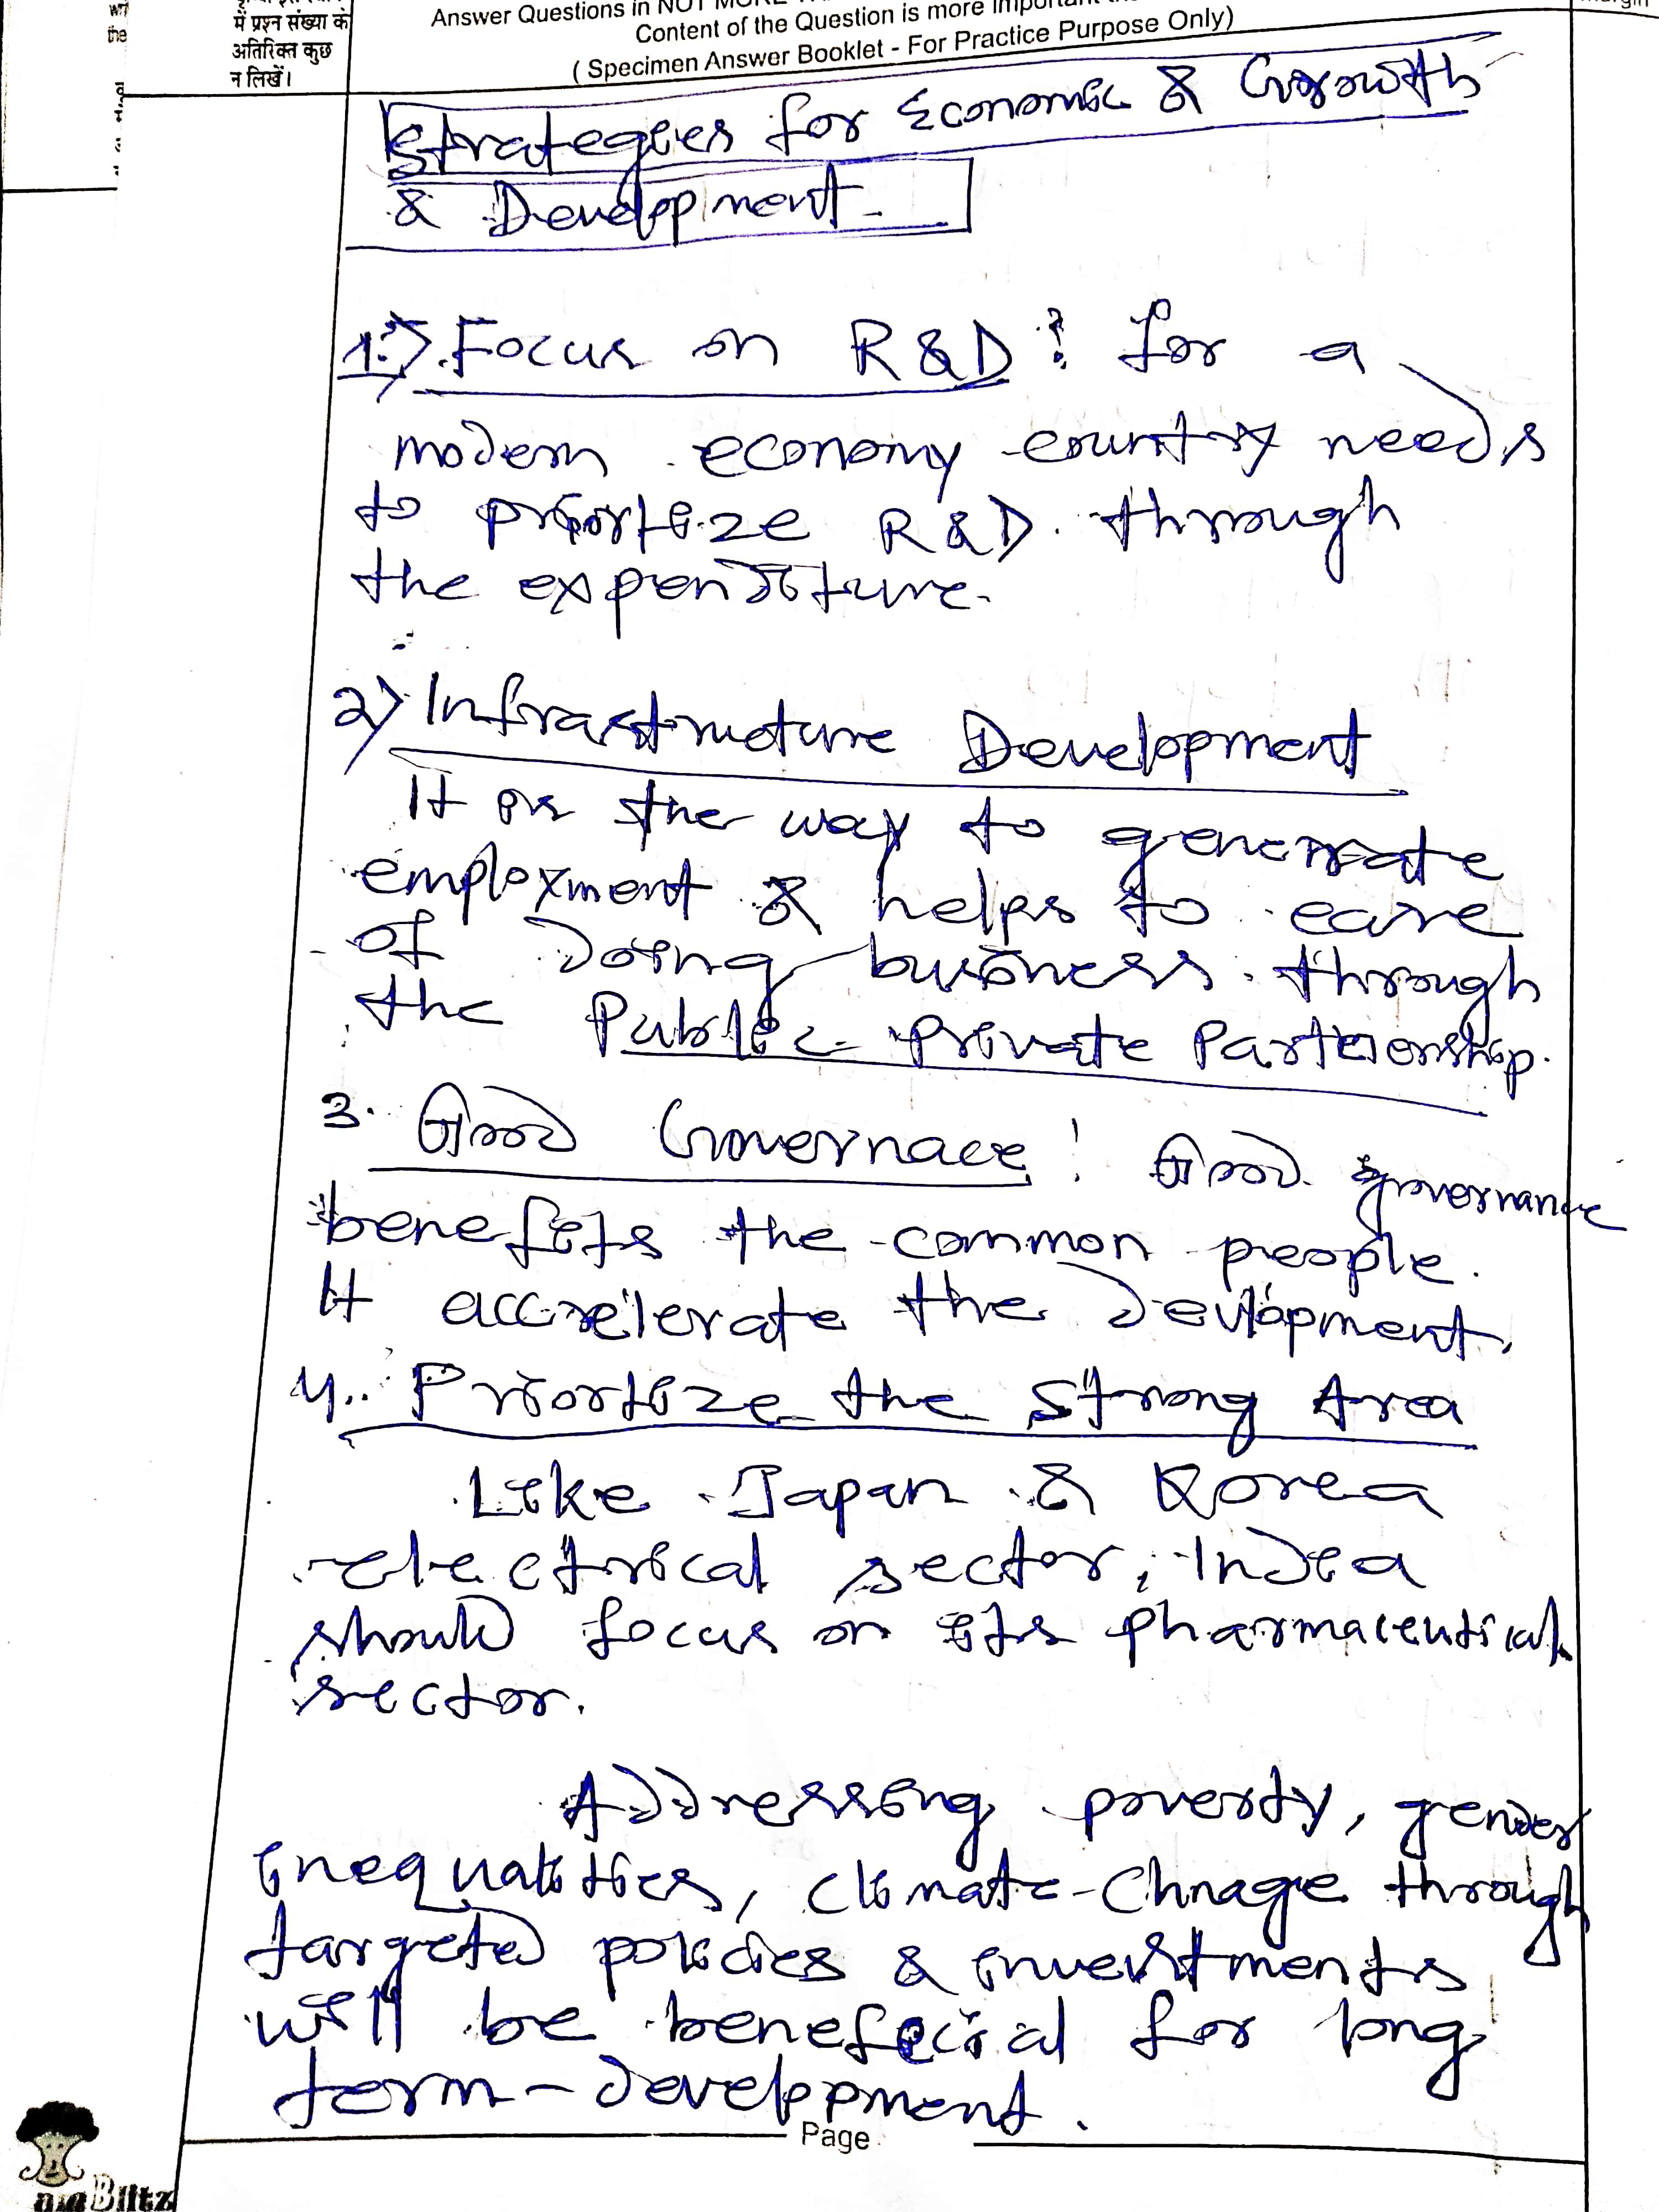 में प्रश्न संख्या के
अतिरिक्त कुछ
न लिखें।
the
Answer Questions in NOT
Content of the Question is more
( Specimen Answer Booklet - For Practice Purpose Only)
Strategies for Economic & Growth
& Development
1) Focus on R&D : for a
modern economy country needs
to priortize R&D through
the expenditure.
2) Infrastructure Development
It is the way to generate
employment & helps to ease
of doing business through
the Public-Private Partnership.
3. Good Governace : Good governance
benefits the common people.
It accelerate the devlopment.
4. Priortize the Strong Area
Like Japan & Korea
electrical sector, India
should focus on its pharmaceutical
sector.
Addressing poverty, gender
inequalities, climate-chnage through
targeted policies & investments
will be beneficial for long
term-development.
Page
Blitz